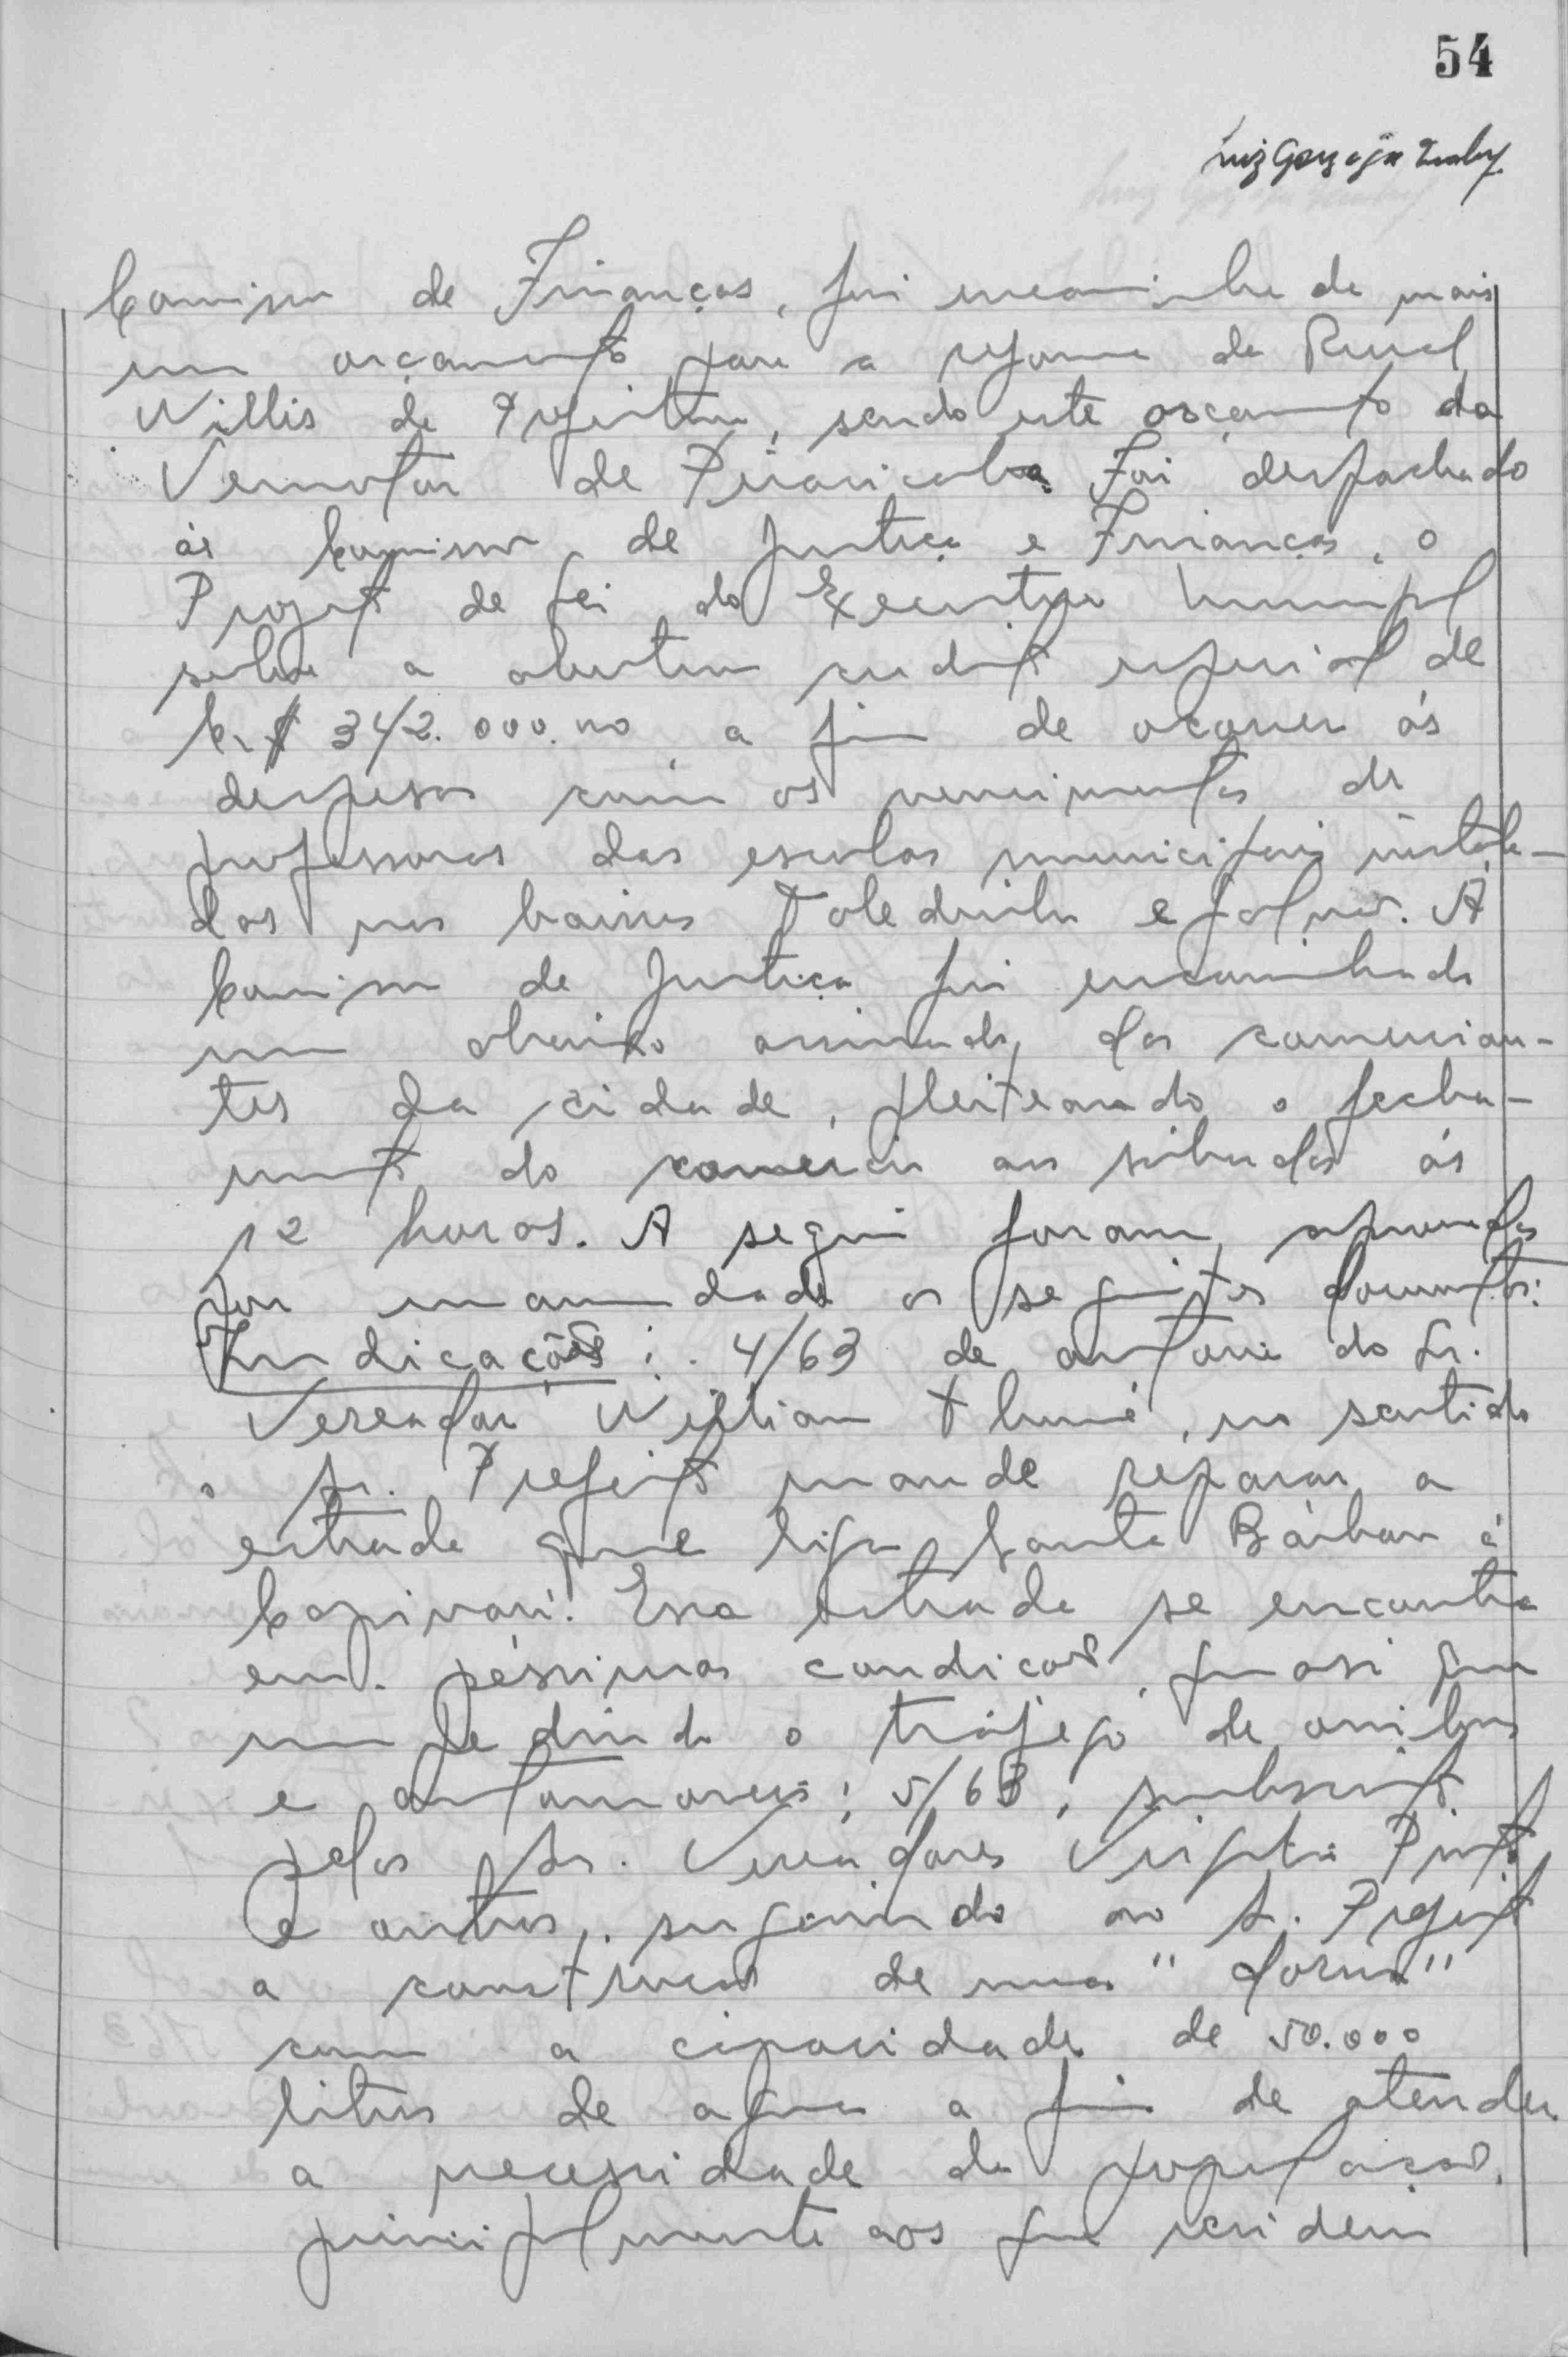 54
Comissão de Finanças, foi encaminhado mais
um orçamento para a reforma da Rural
Willis da Prefeitura, sendo este orçamento da
Vemotor de Piracicaba. Foi despachado
às Comissões de Justiça e Finanças, o
Projeto de Lei do Executivo Municipal
sobre a abertura credito especial de
Cr$ 342.000,00, a fim de ocorrer ás
despesas com os vencimentos de
professoras das escolas municipais instala-
das nos bairros Toledinho e. Á
Comissão de Justiça foi encaminhado
um abaixo assinado, dos comercian-
tes da cidade, pleiteando o fecha-
mento do comercio aos sabados ás
12 horas. A seguir foram aprovados
por unanimidade os seguintes documentos:
Indicações: 4/63 de autoria do Sr.
Vereador Willian, no sentido
o Sr. Prefeito mande reparar a
estrada que liga Santa Bárbara á
Capivari. Essa estrada se encontra
em péssimas condicões, quasi que
impedindo o tráfego de onibus
e automoveis; 5/63, subscrito
pelos Srs. Vereadores Pinto
e outros, sugerindo ao Sr. Prefeito
a construção de uma "dorna"
com a capacidade de 50.000
litros de agua a fim de atender
a necessidade da população,
principalmente aos que residem